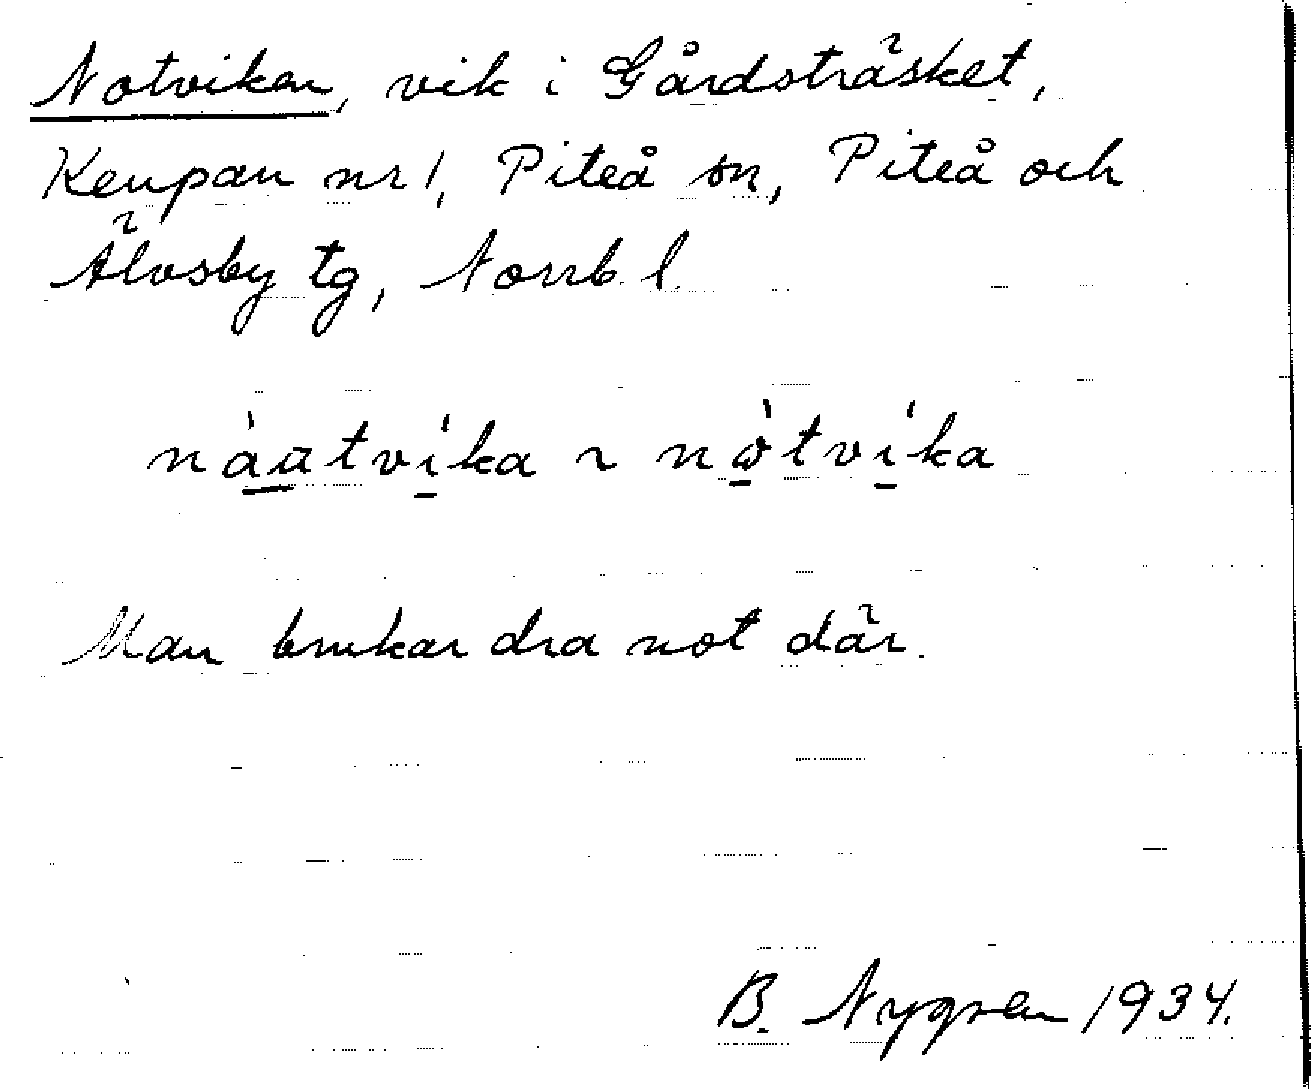 Notviken, vik i Gårdsträsket,
Keupan nr 1, Piteå sn, Piteå och
Älvsby tg, Norrb. l.
nàɑtvíka ~ nòtvíka
Man brukar dra not där.
B. Nygren 1934.